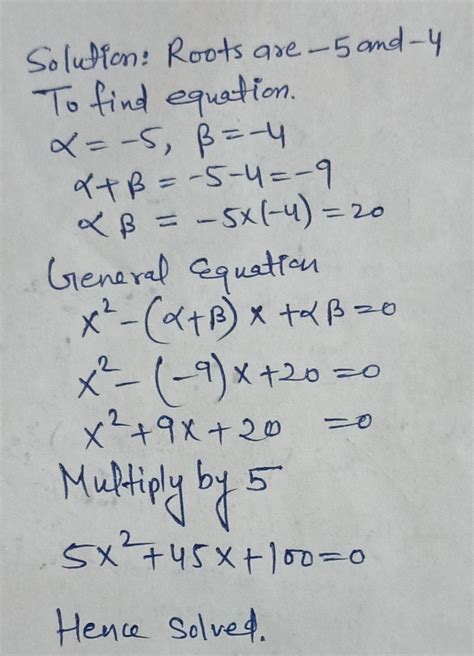 Solution: Roots are -5 and -4
To find equation.
α = -5, β = -4
α+β = -5-4 = -9
αβ = -5x(-4) = 20
General Equation
x²-(α+β)x+αβ=0
x²-(-9)x+20=0
x²+9x+20 =0
Multiply by 5
5x²+45x+100=0
Hence Solved.